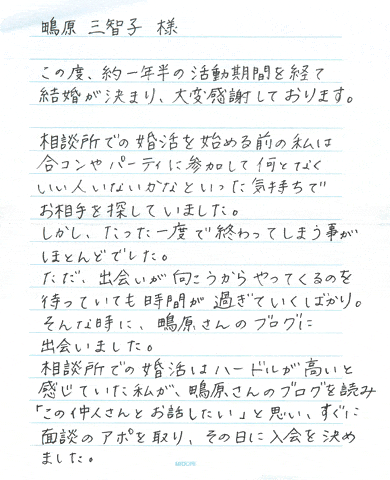 鴫原 三智子 様
この度、約一年半の活動期間を経て
結婚が決まり、大変感謝しております。
相談所での婚活を始める前の私は
合コンやパーティに参加して何となく
いい人いないかなといった気持ちで
お相手を探していました。
しかし、たった一度で終わってしまう事が
ほとんどでした。
ただ、出会いが向こうからやってくるのを
待っていても時間が過ぎていくばかり。
そんな時に、鴫原さんのブログに
出会いました。
相談所での婚活はハードルが高いと
感じていた私が、鴫原さんのブログを読み
「この仲人さんとお話したい」と思い、すぐに
面談のアポを取り、その日に入会を決め
ました。